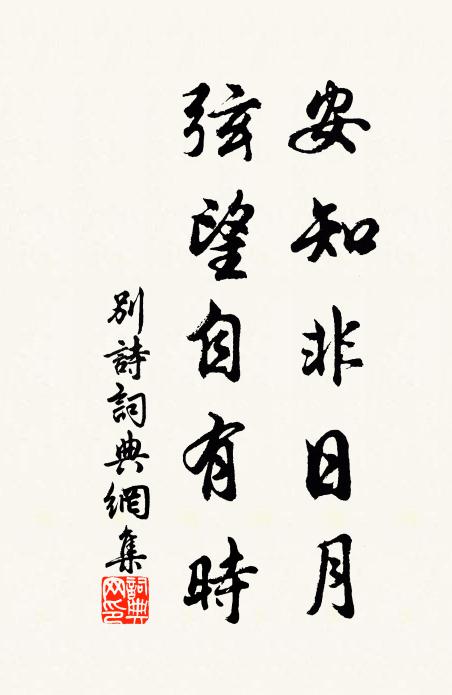 安知非日月
弦望自有時
別詩詞典網集
詞典網印